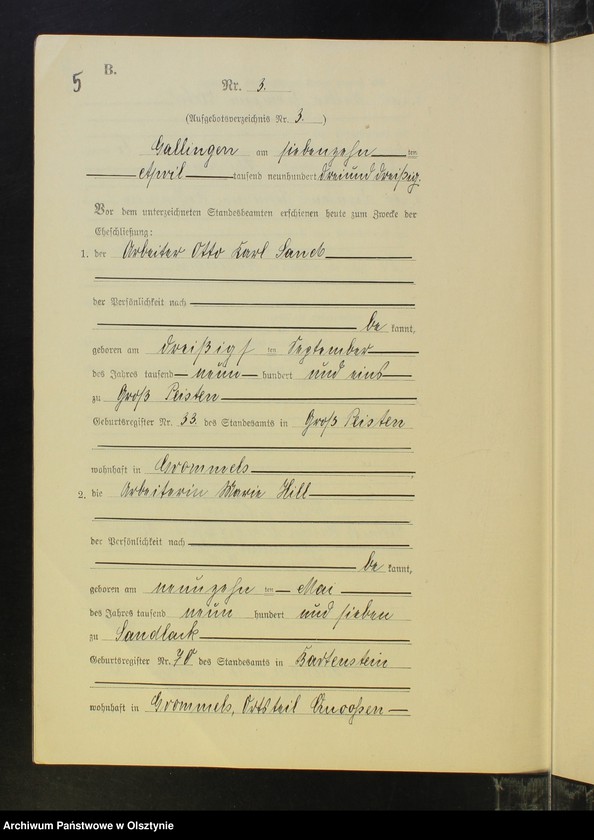 5
B.
Nr. 3.
(Aufgebotsverzeichnis Nr. 3. )
Gallingen am siebenzehn ten
April tausend neunhundert dreiund dreißig.
Vor dem unterzeichneten Standesbeamten erschienen heute zum Zwecke der
Eheschließung:
1. der Arbeiter Otto Karl
der Persönlichkeit nach
be kannt,
geboren am dreißigs ten September
des Jahres tausend neun hundert und eins
zu Groß Peisten
Geburtsregister Nr. 33. des Standesamts in Groß Peisten
wohnhaft in Grommels
2. die Arbeiterin Marie Hill
der Persönlichkeit nach
be kannt,
geboren am neunzehn ten Mai
des Jahres tausend neun hundert und sieben
zu Sandlack
Geburtsregister Nr. 70 des Standesamts in Bartenstein
wohnhaft in Grommels, Ortsteil
Archiwum Państwowe w Olsztynie